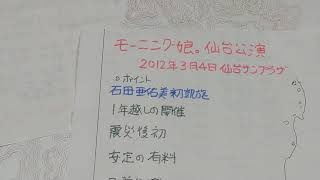 モーニング娘。仙台公演
2012年3月4日仙台サンプラザ
○ポイント
石田亜佑美初凱旋
1年越しの開催
震災後初
安定の有料